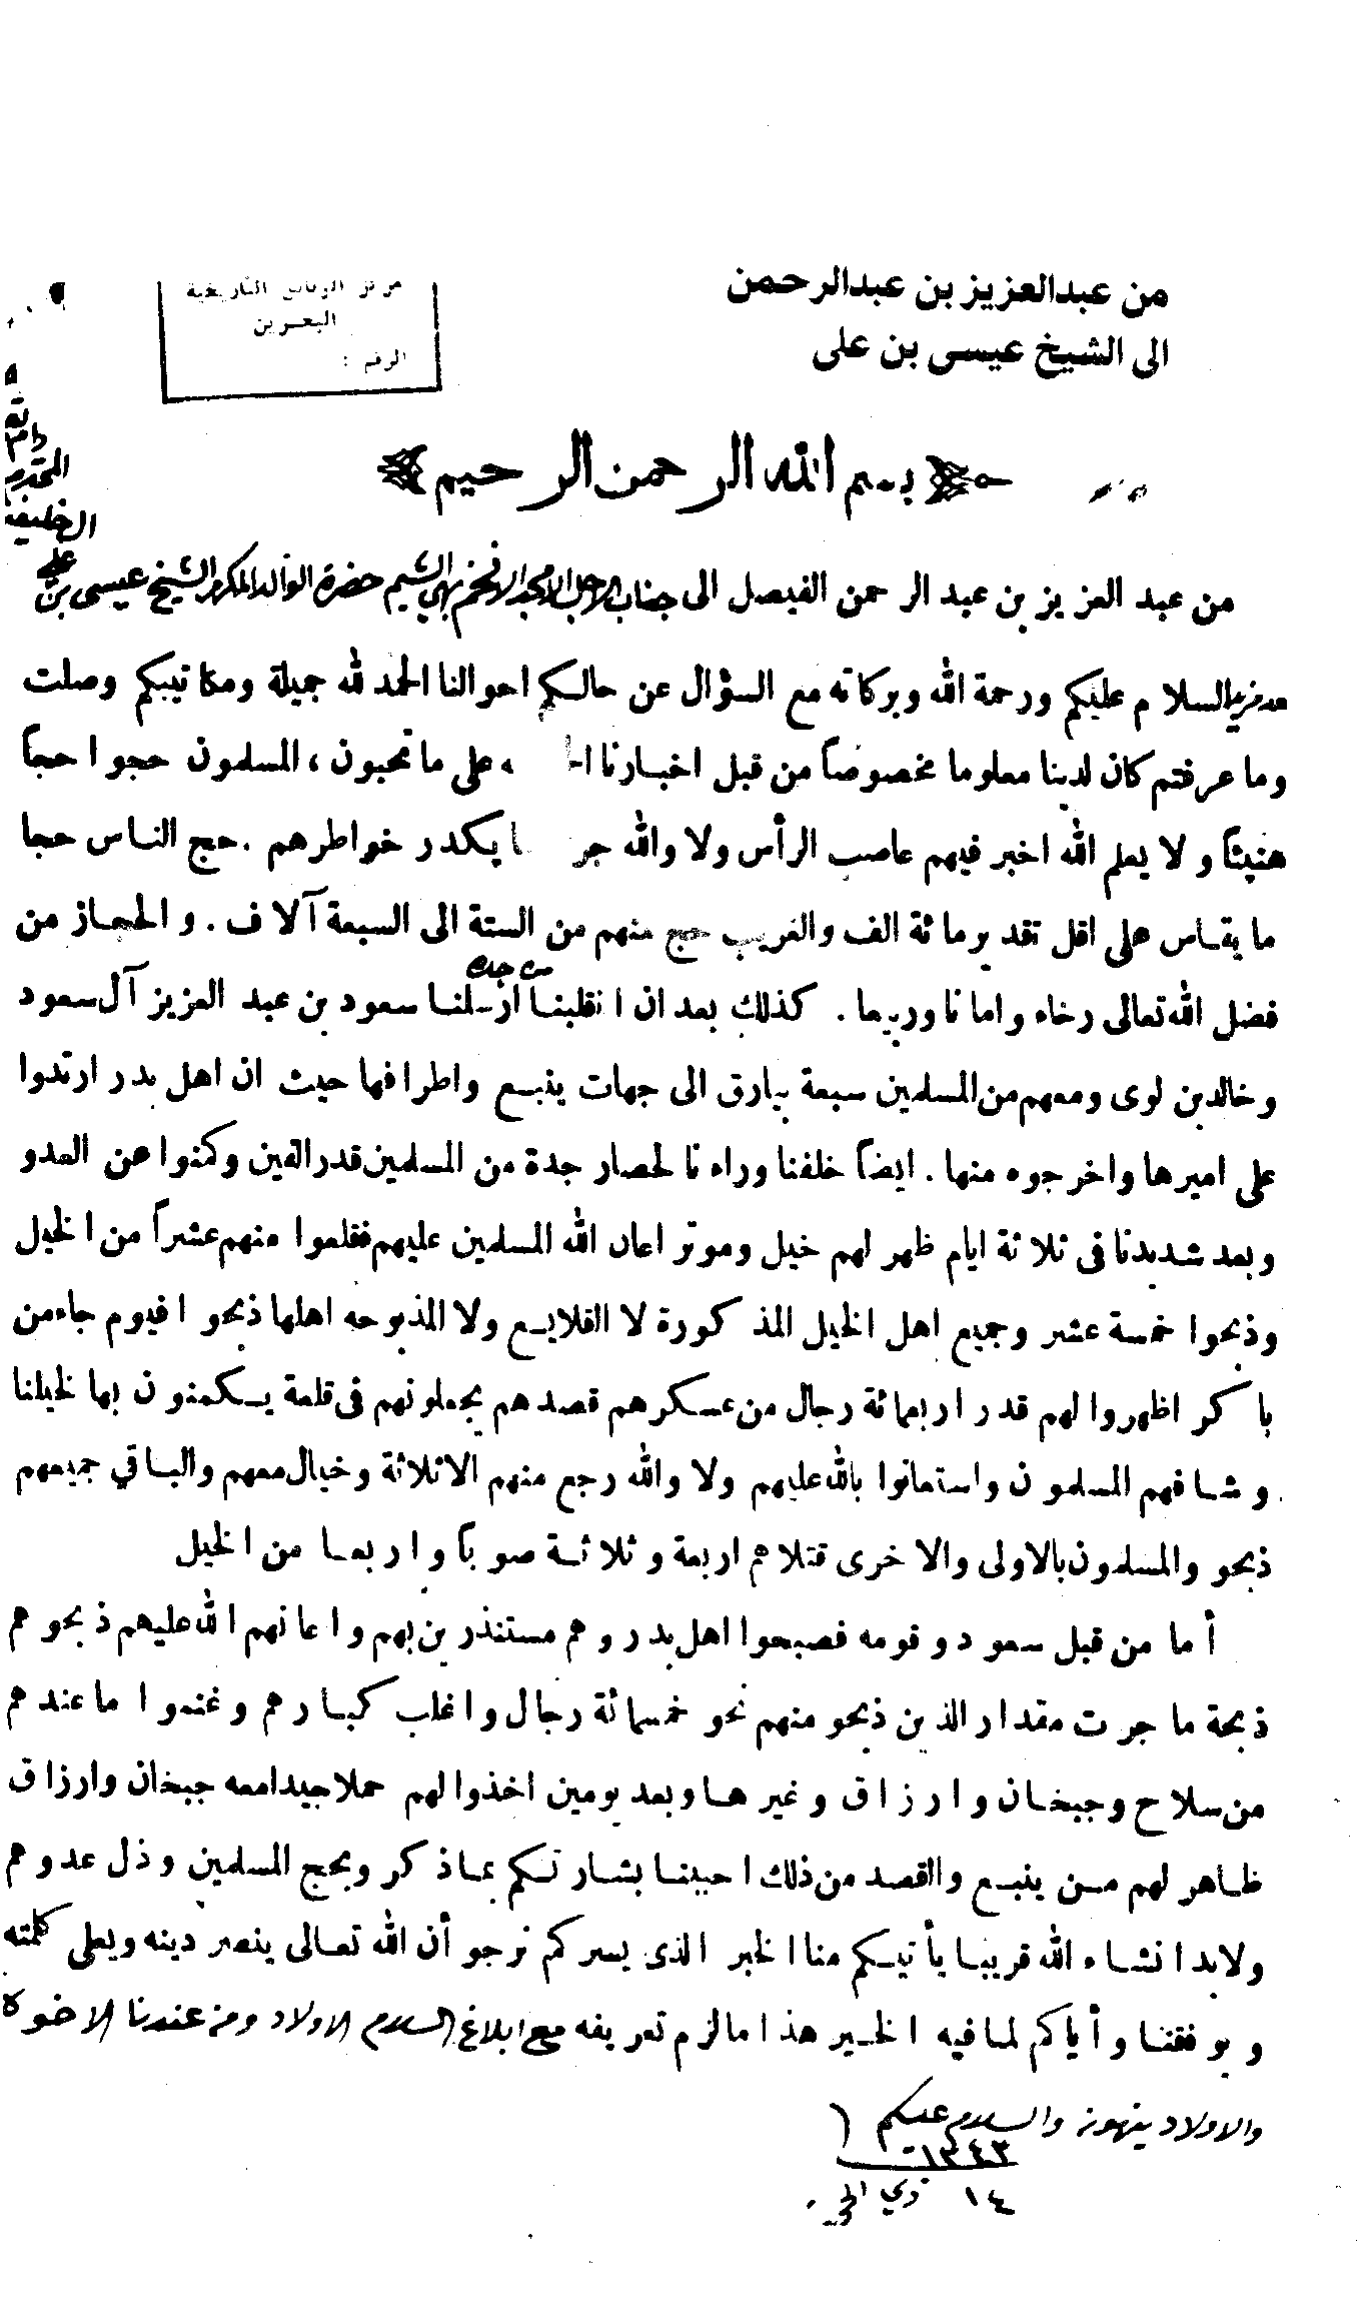 من عبدالعزيز بن عبدالرحمن
الى الشيخ عيسى بن على
مركز الوثائق التاريخية
البحرين
الرقم :
بسم الله الرحمن الرحيم
من عبد العزيز بن عبد الرحمن الفيصل الى جناب الاجل الامجد الافخم بهي الشيم حضرة الوالد المكرم الشيخ عيسى بن علي
الخليفة
المحترم
دام
السلام عليكم ورحمة الله وبركاته مع السؤال عن حالكم احوالنا الحمد لله جميلة ومكاتيبكم وصلت
وما عرفتم كان لدينا معلوما مخصوصاً من قبل اخبارنا على ما تحبون ، المسلمون حجوا حجاً
هنيئاً ولا يعلم الله اخبر فيهم عاصب الرأس ولا والله جر ما يكدر خواطرهم . حج الناس حجا
ما يقاس على اقل تقدير مائة الف والغريب حج منهم من الستة الى السبعة آلاف . والحجاز من
فضل الله تعالى رخاء وامانا وربيعا . كذلك بعد ان انقلبنا من جده ارسلنا سعود بن عبد العزيز آل سعود
وخالد بن لوى ومعهم من المسلمين سبعة بيارق الى جهات ينبع واطرافها حيث ان اهل بدر ارتدوا
على اميرها واخرجوه منها . ايضاً خلفنا وراءنا لحصار جدة من المسلمين قدر الفين وكمنوا عن العدو
وبعد شديدنا فى ثلاثة ايام ظهر لهم خيل وموتر اعان الله المسلمين عليهم فقلعوا منهم عشراً من الخيل
وذبحوا خمسة عشر وجميع اهل الخيل المذكورة لا القلايع ولا المذبوحه اهلها ذبحوا فيوم جاء من
باكر اظهروا لهم قدر اربعمائة رجال من عسكرهم قصدهم يجعلونهم فى قلعة يكمنون بها لخيلنا
وشافهم المسلمون واستعانوا بالله عليهم ولا والله رجع منهم الا ثلاثة وخيال معهم والباقي جميعهم
ذبحو والمسلمون بالاولى والاخرى قتلاهم اربعة وثلاثة صوباً واربعا من الخيل
أما من قبل سعود وقومه فصبحوا اهل بدر وهم مستنذرين بهم واعانهم الله عليهم ذبحوهم
ذبحة ما جرت مقدار الذين ذبحو منهم نحو خمسمائة رجال واغلب كبارهم وغنموا ما عندهم
من سلاح وجبخان وارزاق وغيرها وبعد يومين اخذوا لهم حملا جيدا معه جبخان وارزاق
ظاهر لهم من ينبع والقصد من ذلك احبينا بشارتكم بما ذكر وبحج المسلمين وذل عدوهم
ولا بد انشاء الله قريبا يأتيكم منا الخبر الذى يسركم نرجو أن الله تعالى ينصر دينه ويعلى كلمته
ويوفقنا وأياكم لما فيه الخير هذا ما لزم تعريفه مع ابلاغ السلام الاولاد ومن عندنا الاخوة
والاولاد ينهون والسلام عليكم
١٣٤٣
١٤ ذي الحجة